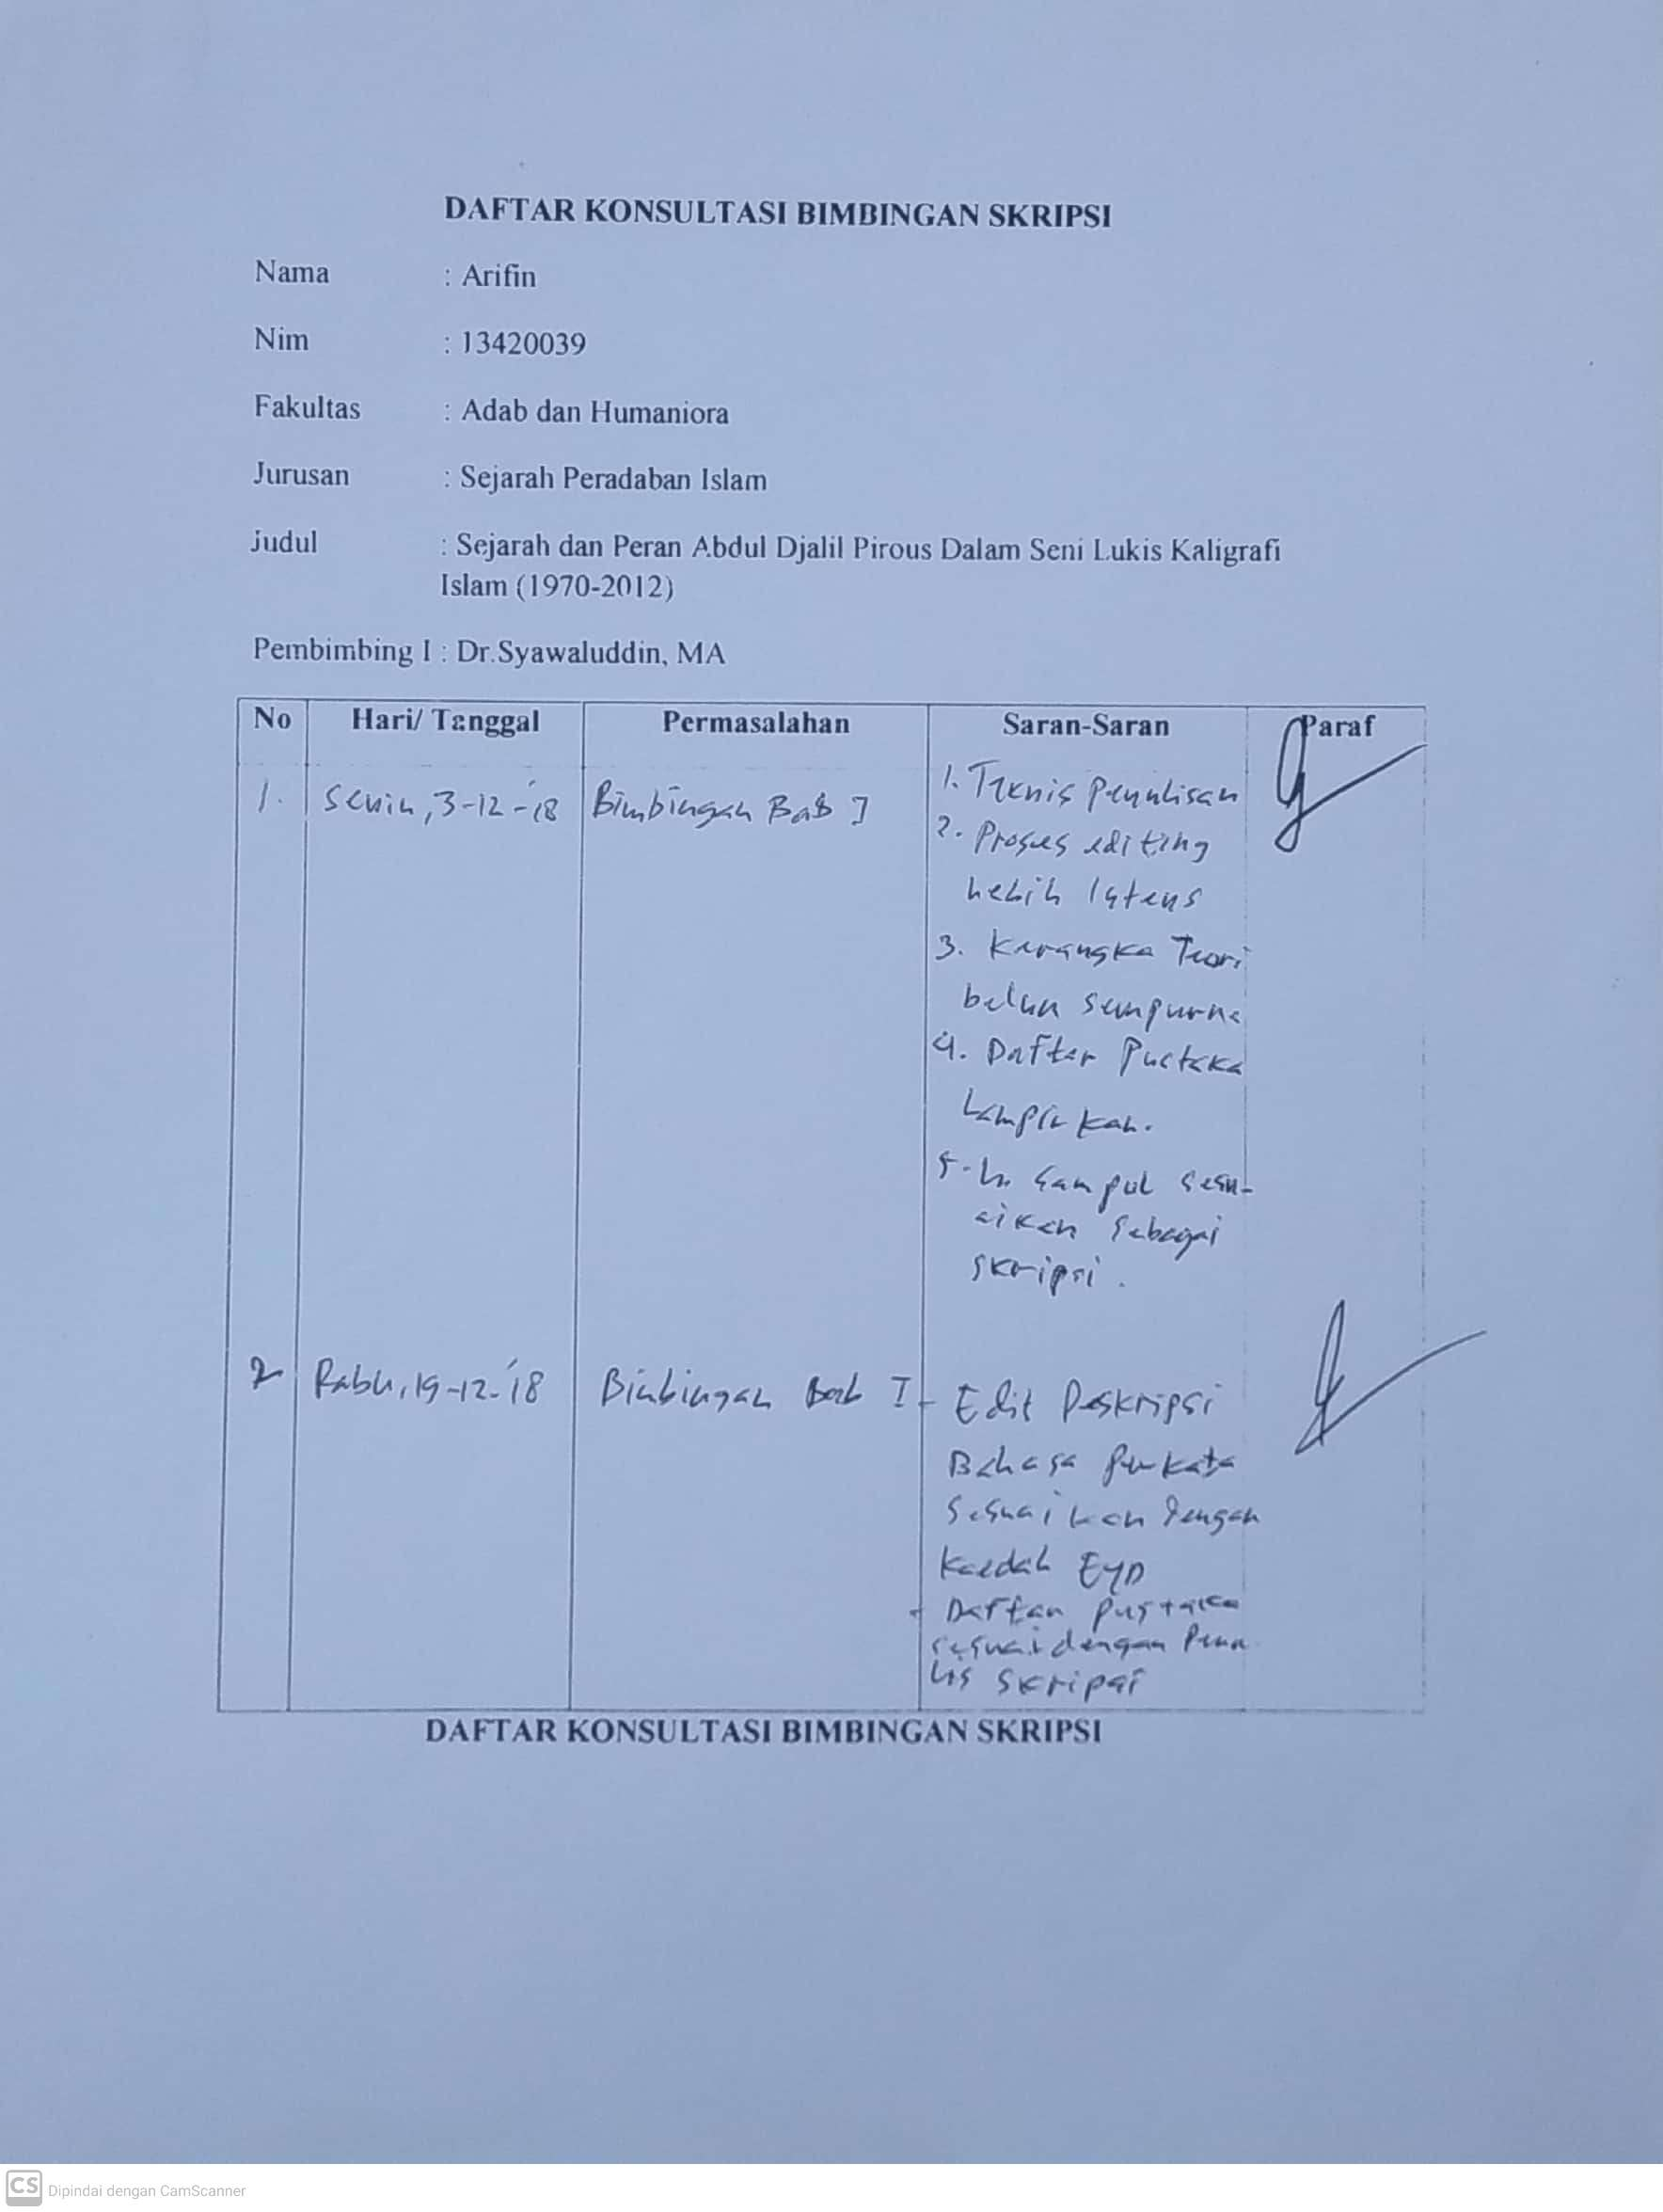 DAFTAR KONSULTASI BIMBINGAN SKRIPSI
Nama : Arifin
Nim : 13420039
Fakultas : Adab dan Humaniora
Jurusan : Sejarah Peradaban Islam
Judul : Sejarah dan Peran Abdul Djalil Pirous Dalam Seni Lukis Kaligrafi
Islam (1970-2012)
Pembimbing I : Dr.Syawaluddin, MA
No Hari/ Tanggal Permasalahan Saran-Saran Paraf
1. Senin, 3-12-'18 Bimbingan Bab I 1. Teknis Penulisan
2. Proses editing
lebih Intens
3. Kerangka Teori
belum sempurna
4. Daftar Pustaka
Lampirkan.
5. Sampul sesu-
aikan sebagai
skripsi.
2 Rabu, 19-12-'18 Bimbingan Bab I - Edit Deskripsi
Bahasa perkata
sesuaikan dengan
Kaedah EYD
- Daftar Pustaka
sesuai dengan Penu
lis skripsi
DAFTAR KONSULTASI BIMBINGAN SKRIPSI
CS Dipindai dengan CamScanner